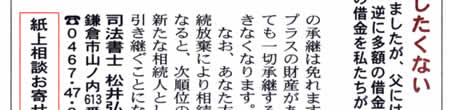 したくない
ましたが、父には
逆に多額の借金
の借金を私たちが
の承継は免れます
プラスの財産が
ても一切承継する
きなくなります。
なお、あなた方
続放棄により相続
なると、次順位の
新たな相続人とし
引き継ぐことにな
司法書士 松井弘
鎌倉市山ノ内613番
☎0467・47・
紙上相談お寄せ